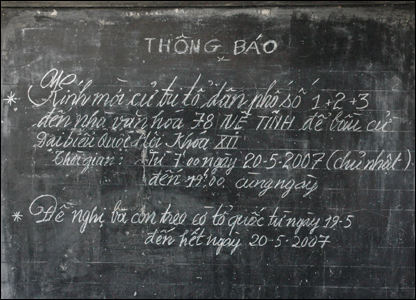 THÔNG BÁO
* Kính mời cử tri tổ dân phố số 1+2+3
đến nhà văn hóa 78 TUỆ TĨNH để bầu cử
Đại biểu Quốc Hội Khóa XII
Thời gian: Từ 7h00 ngày 20-5-2007 (chủ nhật)
đến 19h00 cùng ngày
* Đề nghị bà con treo cờ tổ quốc từ ngày 19-5
đến hết ngày 20-5-2007